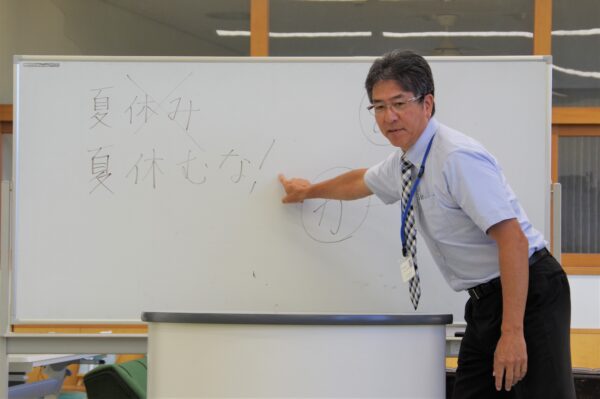 夏休み
夏休むな!
力